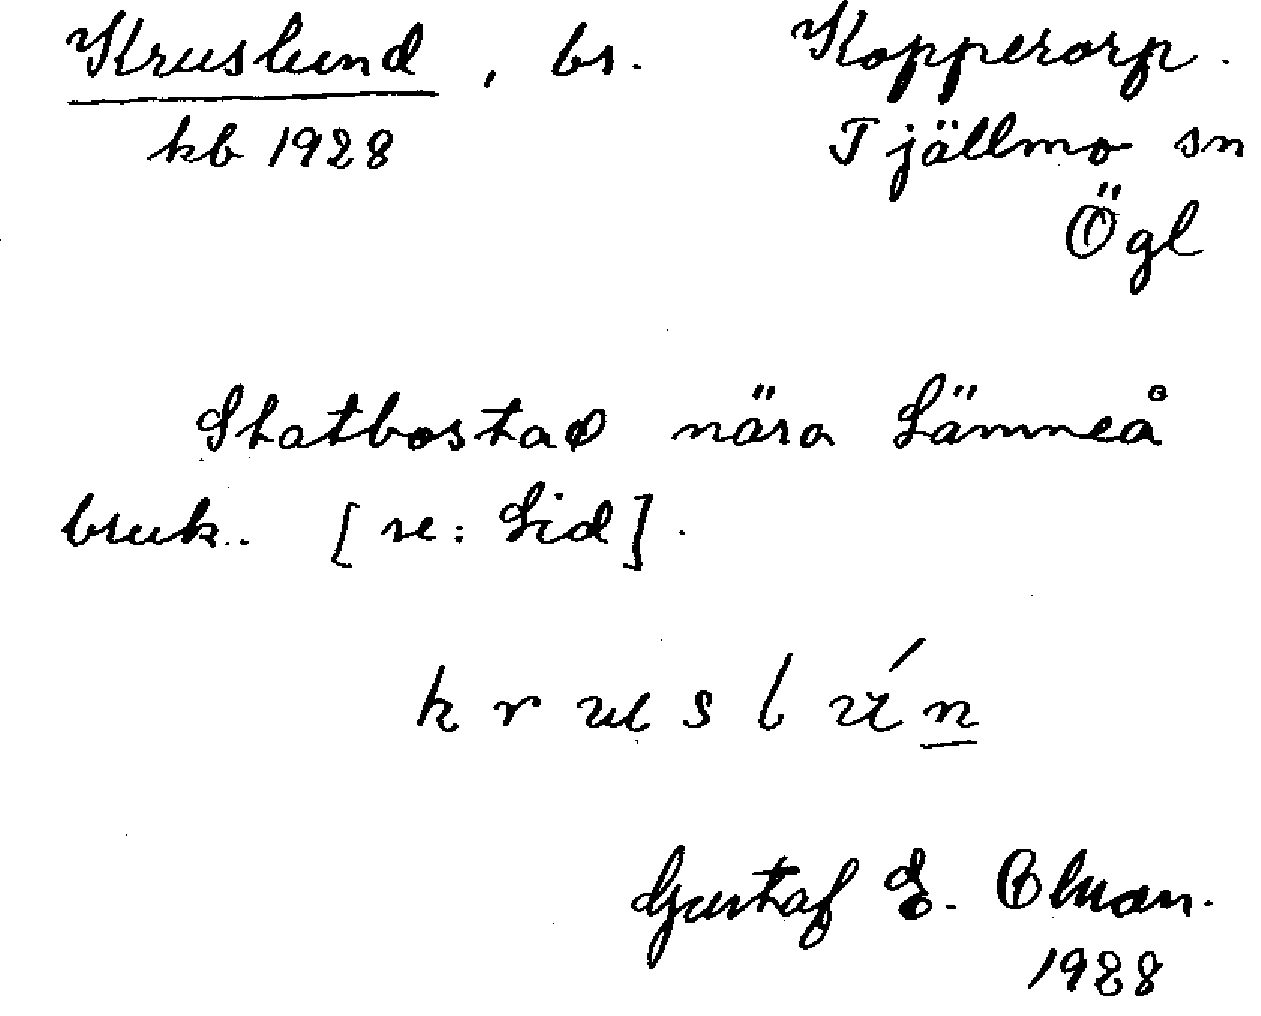 Kruslund, bs. Kopperorp.
kb 1928 Tjällmo sn
Ögl
Statbostad nära Lämneå
bruk. [se: Lid].
k r u s l ú n
Gustaf E. Olman.
1928